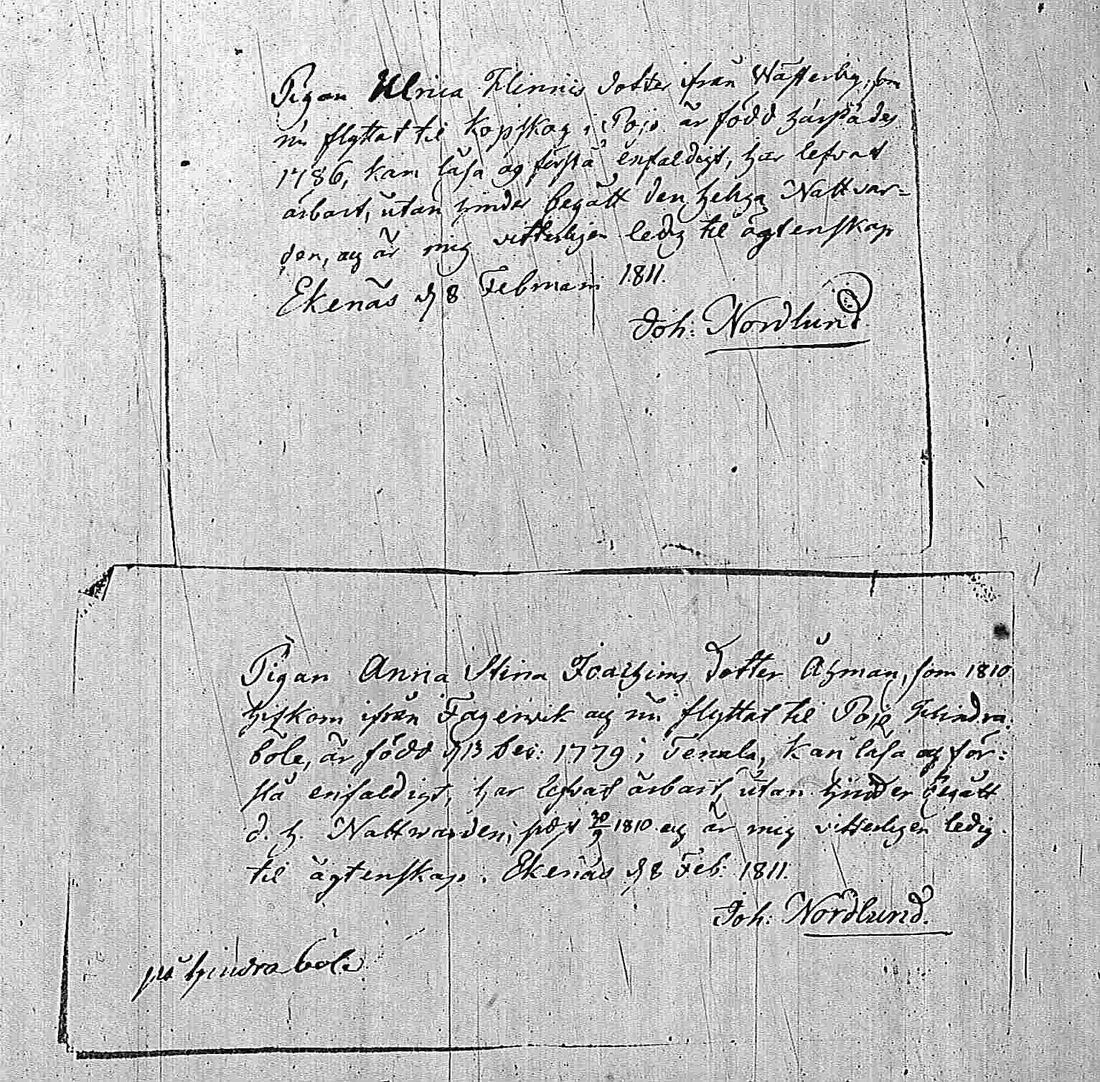 Pigan Ulrica Flinnis dotter ifrån Wästerby, som
nu flyttat til Kopskog i Pojo är född härstädes
1786, kan läsa og förstå enfaldigt, har lefvat
ärbart, utan hinder begått den heliga Nattvar=
den, og är mig vitterligen ledig til ägtenskap
Ekenäs d 8 Februarii 1811.
Joh: Nordlund
Pigan Anna Stina Joachims dotter Åhman, som 1810
hitkom ifrån Fagervik og nu flyttat til Pojo
böle, är född d 13 Dec: 1779 i Tenala, kan läsa og för=
stå enfaldigt, har lefvat ärbart, utan hinder begått
d. h. Nattwarden, 30/9 1810 og är mig vitterligen ledig
til ägtenskap. Ekenäs d 8 Feb: 1811.
Joh: Nordlund.
på hindraböle